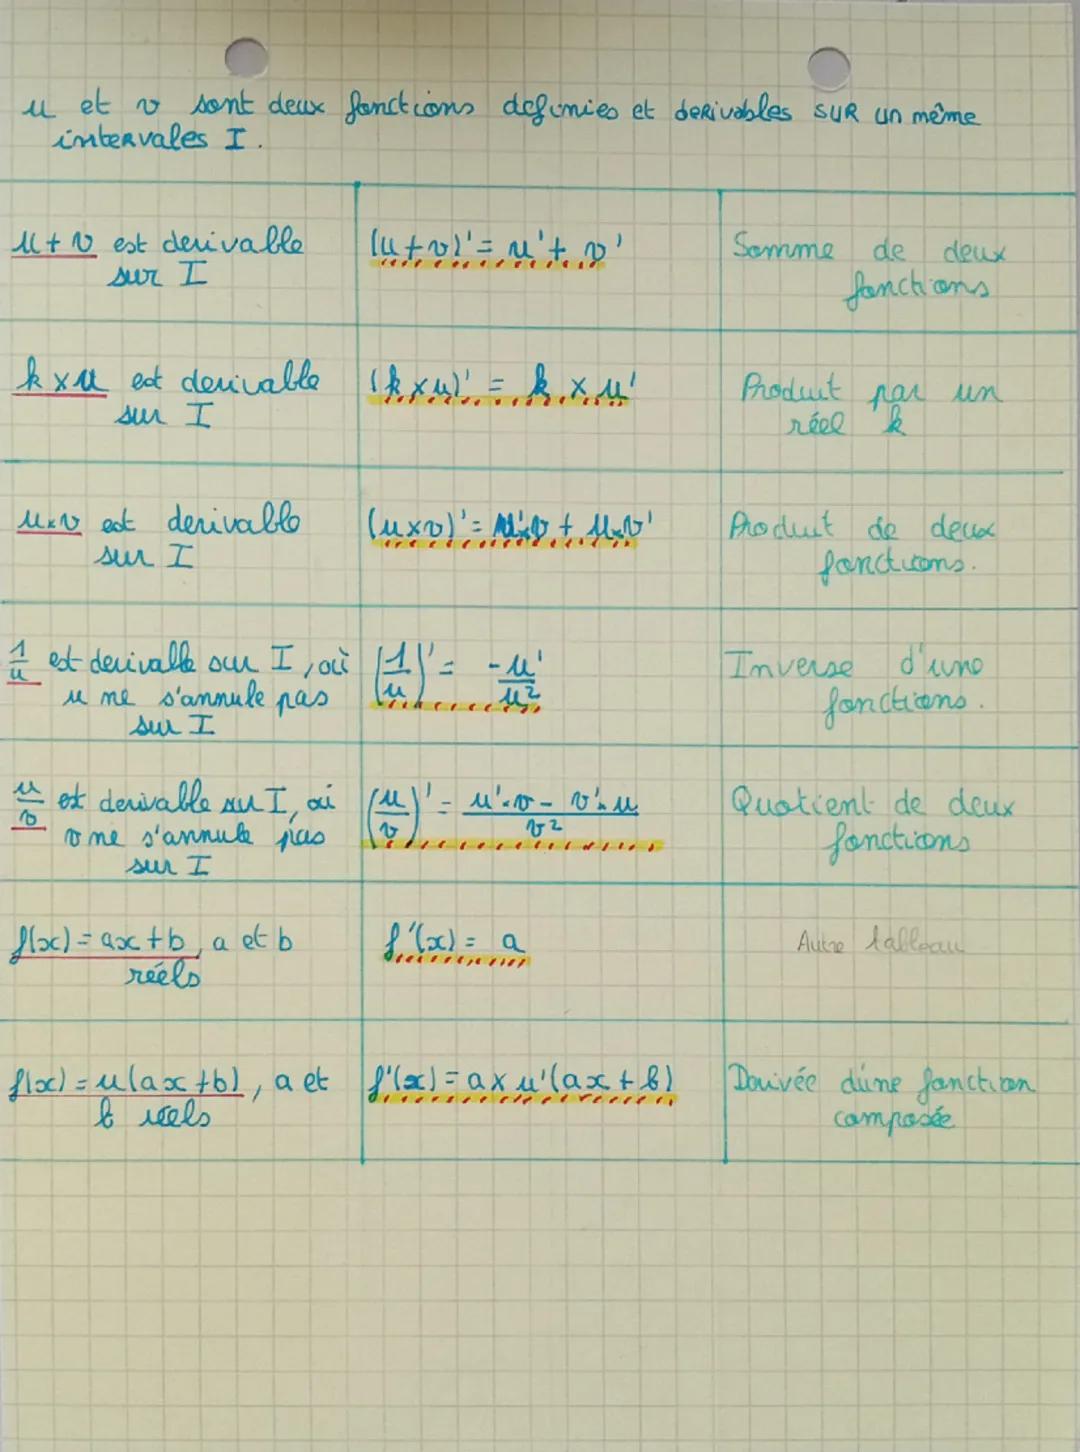 u et v sont deux fonctions definies et derivables sur un même
intervales I.
u + v est derivable
sur I
(u + v)' = u' + v'
Somme de deux
fonctions
k x u est derivable
sur I
(k x u)' = k x u'
Produit par un
réel k
u x v est derivable
sur I
(u x v)' = u' x v + u x v'
Produit de deux
fonctions.
1/u est derivable sur I, où
u ne s'annule pas
sur I
(1/u)' = -u'/u²
Inverse d'une
fonctions.
u/v est derivable sur I, où
v ne s'annule pas
sur I
(u/v)' = u' x v - v' x u / v²
Quotient de deux
fonctions
f(x) = ax + b, a et b
réels
f'(x) = a
Autre tableau
f(x) = u(ax + b), a et
b réels
f'(x) = a x u'(ax + b)
Dérivée d'une fonction
composée